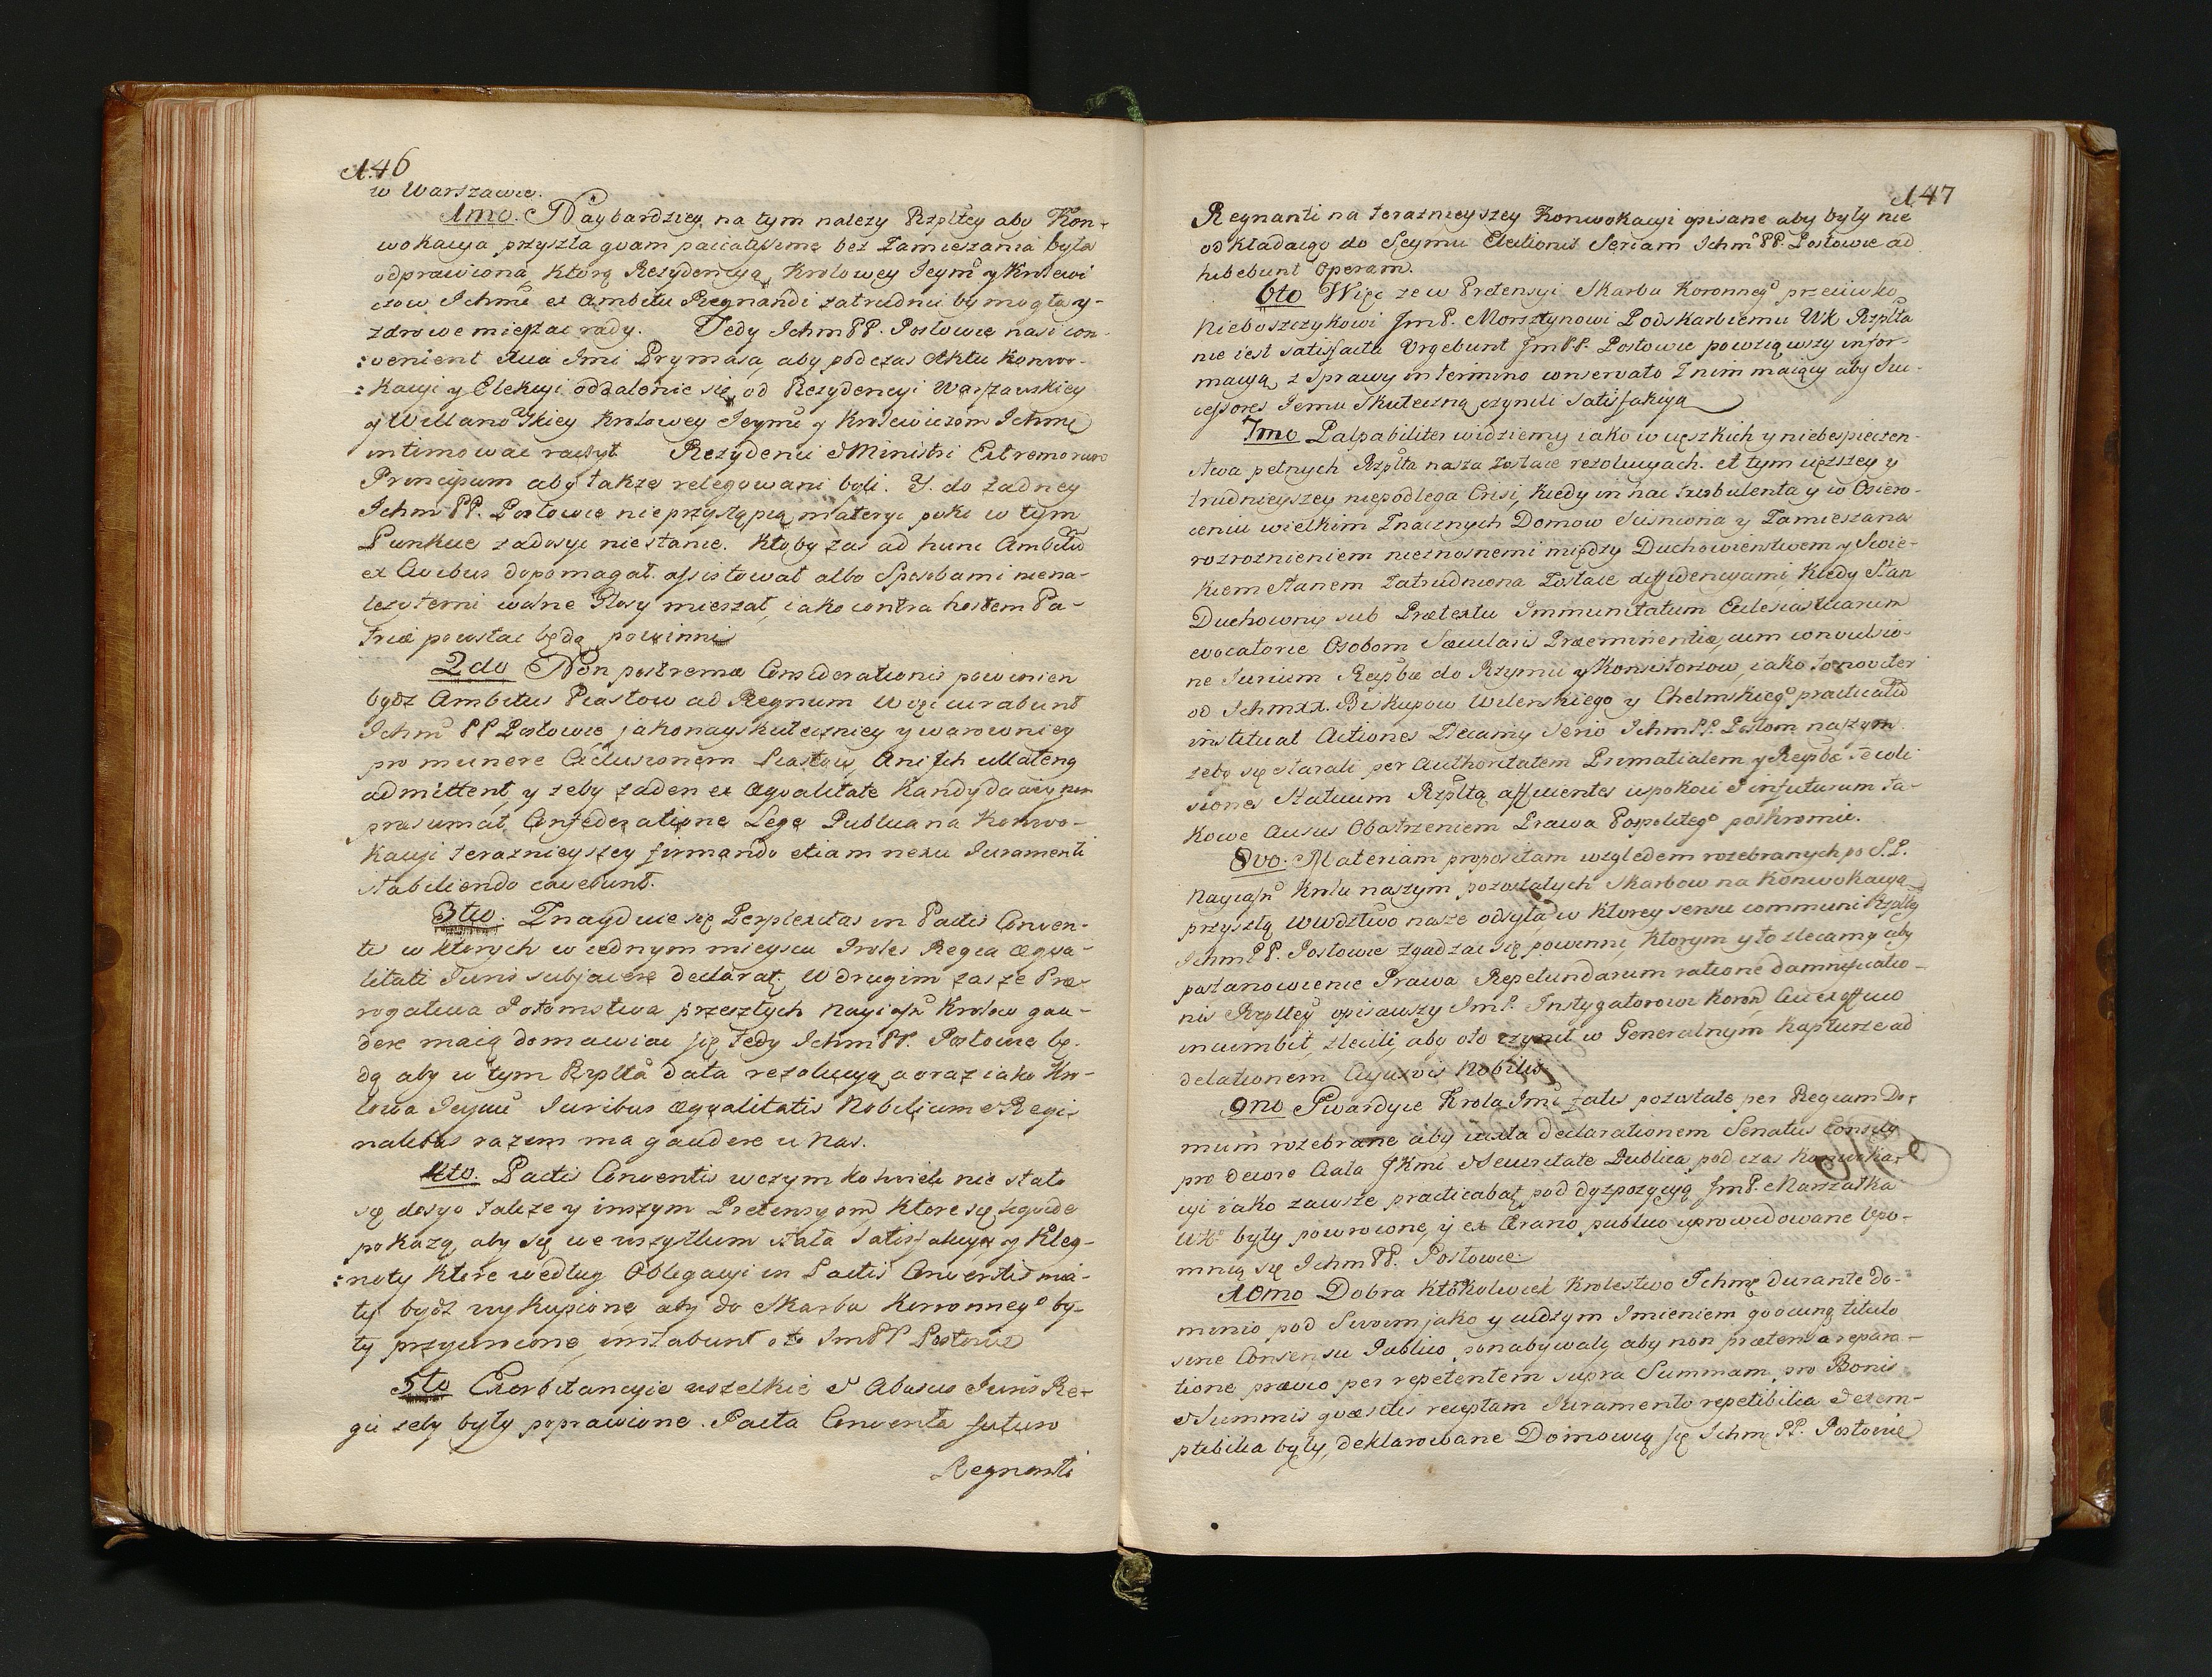 146
w Warszawie.
1mo. Naybardziey na tym nalezy Rzpltey aby Kon-
wokacya przyszła quam pacatissime bez Zamieszania była
odprawiona, ktorą Rezydencya Krolowey Jeymci y Krolewi
czow Ichmć ex Ambitu Regnandi zatrudnić by mogła y-
zdrowe mięszac rady. Tedy Ichm PP. Posłowie nasi con-
:venient Xcia Jmci Prymasa, aby podczas Aktu Konwo-
:kacyi y Elekcyi oddalenie się od Rezydencyi Warszawskiey
y Willanowskiey Krolowey Jeymci y Krolewiczom Ichmć
intimowac raczył. Rezydenci & Ministri Exterorum
Principum aby także relegowani byli. Y. do żadney
Ichm PP. Posłowie nieprzystąpią materyi poki w tym
Punkcie zadosyc niestanie. Ktoby zas ad hunc Ambitū
ex Civibus dopomagał assistował albo Sposobami niena-
lezytemi wolne Głosy mieszał, jako contra hostem Pa-
triæ powstac będą powinni
2do Non postremæ Considerationis powinien
bydz Ambitus Piastow ad Regnum Więc curabunt
Ichm PP Posłowie jako nayskuteczniey y warowniey
pro munere Exclusionem Piastow, Ani Ich ullatenq
admittent, y zeby zaden ex Aequalitate Kandydacicy non
præsumat, Confederatione Lege Publica na Konwo-
kacyi terazniejszey firmando etiam nexu Juramenti
stabiliendo cavebunt.
3tio. Znayduie się Perplexitas in Pactis Conven-
tis w ktorych w iednym mieyscu Proles Regia æqua-
litati Juris subjacere declarat. W drugim zas ze Præ-
rogatiwa Potomstwa przeszłych Nayiasn Krolow gau-
dere maią domawiac się tedy Ichm PP. Posłowie bę-
dą aby w tym Rzplta data rezolucyą a oraz iako Kro-
lowa Jeymć Juribus æqualitatis Nobilium & Regi-
nalibus razem ma gaudere u Nas.
4to. Pactis Conventis w czym kolwiek nie stało
się dosyc także y inszym Pretensyom, ktore się legitime
pokazą, aby się we wszystkim stała Satisfakcya y Kley-
:noty ktore według Obligacyi in Pactis Conventis mia-
ły bydz wykupione, aby do Skarbu Koronnego by-
ły przywrocone, instabunt o to Jm PP Posłowie
5to Exorbitancyie wszelkie & Abusus Juris Re-
gii zeby były poprawione. Pacta Conventa futuro
Regnanti
147
Regnanti na terazniejszey Konwokacyi opisane aby były nie
odkładaiąc do Seymu Electionis Seriam Ichm PP. Posłowie ad
hibebunt Operam.
6to Więc ze w Pretensyi Skarbu Koronnego przeciwko
Nieboszczykowi Jm P. Morsztynowi Podskarbiemu WK Rzplta
nie iest satisfacta Urgebunt Jm PP. Posłowie powziąwszy infor-
macyą z Sprawy in termino conservato z nim maiącey aby Suc-
cessores Jemu skuteczną czynili Satisfakcyą
7mo Palpabiliter widziemy iako w cięszkich y niebespieczen-
stwa pełnych Rzplta nasza zostaie rezolucyach. et tym cięzszey y
trudnieyszey niepodlega Crisi, kiedy in hac turbulenta y w Osiero-
ceniu wielkim Znacznych Domow scisniona y Zamieszana
rozroznieniem nieznosnemi między Duchowienstwem y Swie-
kiem Stanem zatrudniona Zostaie diffidencyami, kiedy Stan
Duchowny sub Prætextu Immunitatum Ecclesiasticarum
evocatorie Osobom Sæcularis Præeminentiæ, cum convulsio-
ne Jurium Reipbæ do Rzymu y Konsistorzow, iako to noviter
od Ichmxx. Biskupow Wilenskiego y Chelmskiego practicatū
instituat Actiones Zlecamy serio Ichm PP. Posłom naszym
zeby się starali per Authoritatem Primatialem y Reipbæ te coli
siones Statuum Rzpltą afficientes uspokoic & in futurum ta-
kowe Ausus Obostrzeniem Prawa Pospolitego poskromic.
8vo. Materiam propositam względem rozebranych po S.P.
Nayiasn Krolu naszym pozostałych Skarbow na Konwokacyą
przyszłą Wwdztwo nasze odsyła, w ktorey sensu communi Rzpltey
Ichm PP. Posłowie zgadzac się powinni, ktorym y to zlecamy aby
postanowienie Prawa Repetundarum ratione damnificatio-
nis Rzpltey opisawszy Jm P. Instygatorowi Koron, Cui ex officio
incumbit, zlecili, aby oto czynił w Generalnym Kapturze ad
delationem Cujusvis Nobilis.
9no Gwardyie Krola Jmci zatis pozostałe per Regiam Do-
mum rozebrane aby iuxta declarationem Senatus Consily
pro decore Aula JKmci & Securitate Publica, pod czas Konwoka-
cyi iako zawsze practicabat, pod dyzpozycyą Jm P. Marszałka
WKo były powrocone, y ex Ærario publico uprowidowane Upo-
mnią się Ichm PP. Posłowie.
10mo Dobra ktorekolwiek Krolestwo Ichmć durante Do-
minio pod Swoim jako y cudzym Imieniem quocunq titulo
sine Consensu Publico ponabywały, aby non prætensa repara-
tione prævio per repetentem supra Summam, pro Bonis
& Summis quæsitis receptam Juramento repetibilia & exem-
ptibilia były, deklarowane Domowią się Ichm PP. Posłowie